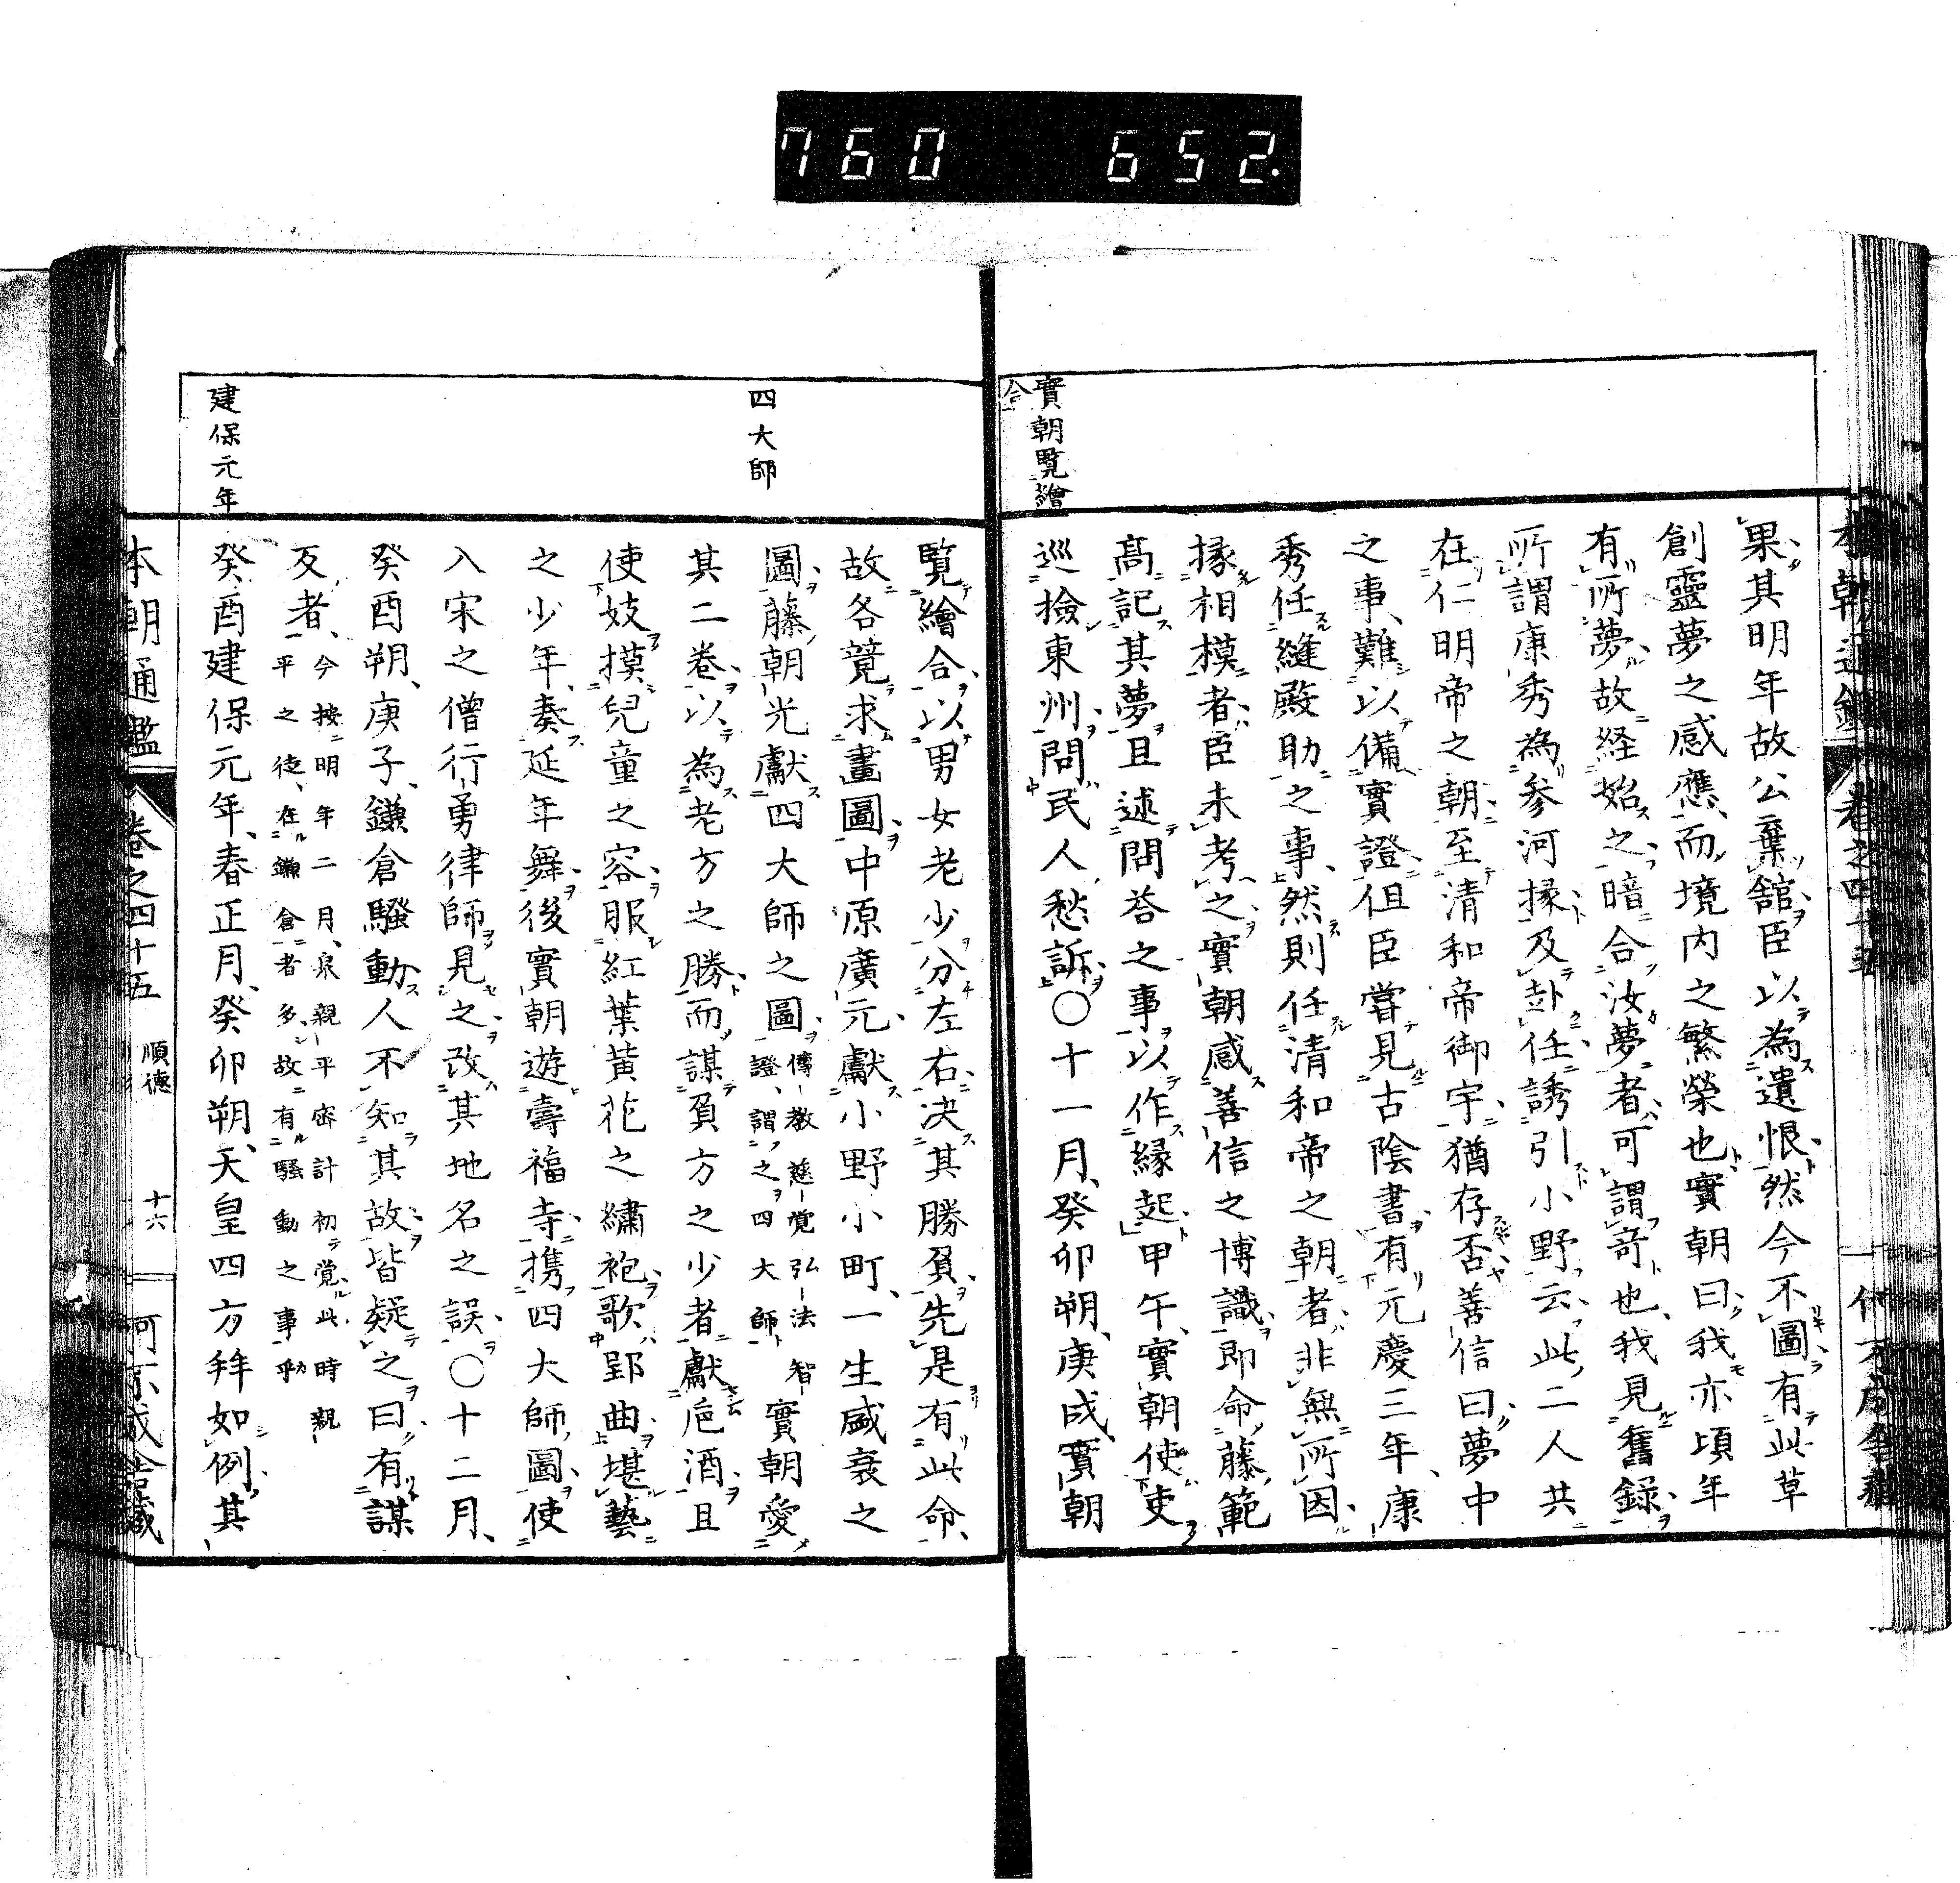 760 652.
實朝覽繪
合
果其明年故公棄舘臣以為遺恨然今不圖有此草
創靈夢之感應而境内之繁榮也實朝曰我亦頃年
有所夢故経始之暗合汝夢者可謂竒也我見舊録
所謂康秀為參河掾及赴任誘引小野云此二人共
在仁明帝之朝至清和帝御宇猶存否善信曰夢中
之事難以備實證但臣嘗見古陰書有元慶三年康
秀任縫殿助之事然則任清和帝之朝者非無所因
掾相摸者臣未考之實朝感善信之博識即命藤範
髙記其夢且述問荅之事以作縁起甲午實朝使吏
巡撿東州問民人愁訴〇十一月癸卯朔庚戌實朝
四大師
建保元年
覧繪合以男女老少分左右决其勝負先是有此命
故各競求畫圖中原廣元獻小野小町一生盛衰之
圖藤朝光獻四大師之圖傳教慈覚弘法智
證謂之四大師實朝愛
其二卷以為老方之勝而謀負方之少者獻巵酒且
使妓摸兒童之容服紅葉黄花之繡袍歌郢曲堪藝
之少年奏延年舞後實朝遊壽福寺携四大師圖使
入宋之僧行勇律師見之改其地名之誤〇十二月
癸酉朔庚子鎌倉騷動人不知其故皆疑之曰有謀
反者今按明年二月泉親平密計初覚此時親
平之徒在鎌倉者多故有騷動之事乎
癸酉建保元年春正月癸卯朔天皇四方拜如例其
本朝通鑑 卷之四十五 順徳 十六